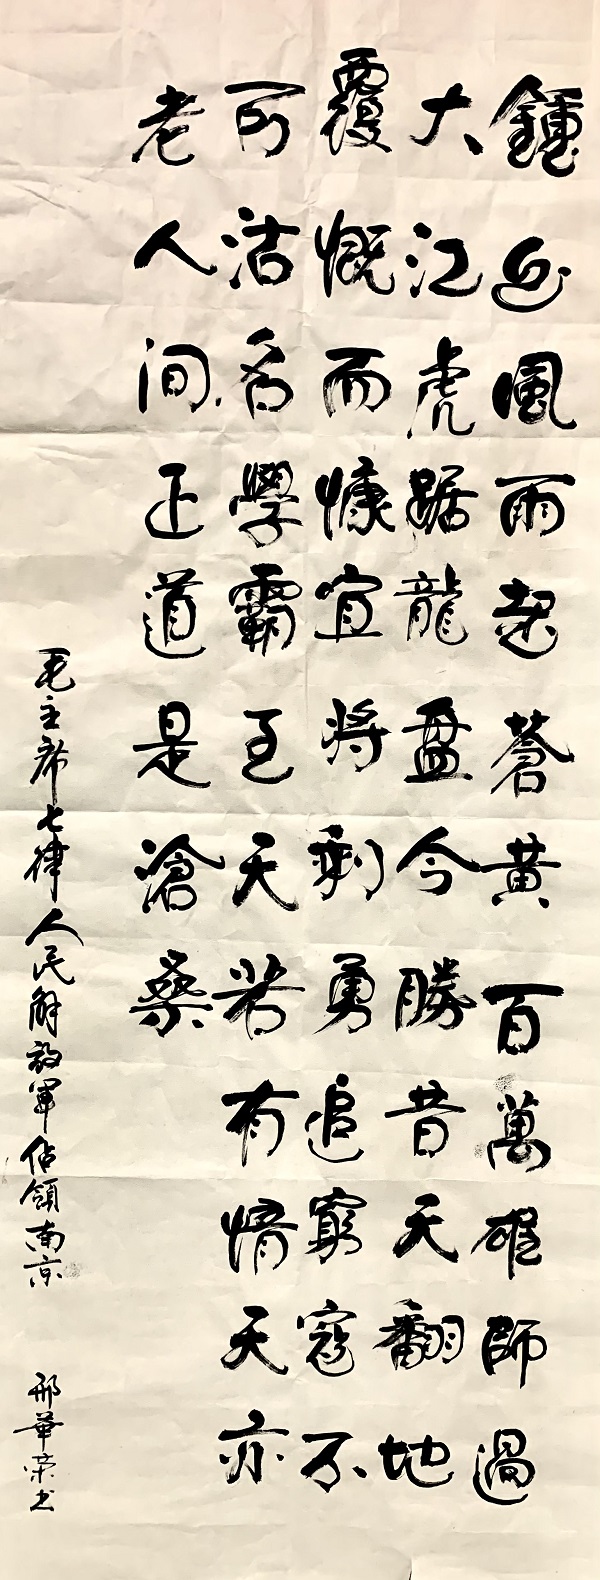 鍾山風雨起蒼黃百萬雄師過
大江虎踞龍盤今勝昔天翻地
覆慨而慷宜將剩勇追窮寇不
可沽名學霸王天若有情天亦
老人间正道是滄桑
毛主席七律人民解放軍佔領南京
邢華荣书